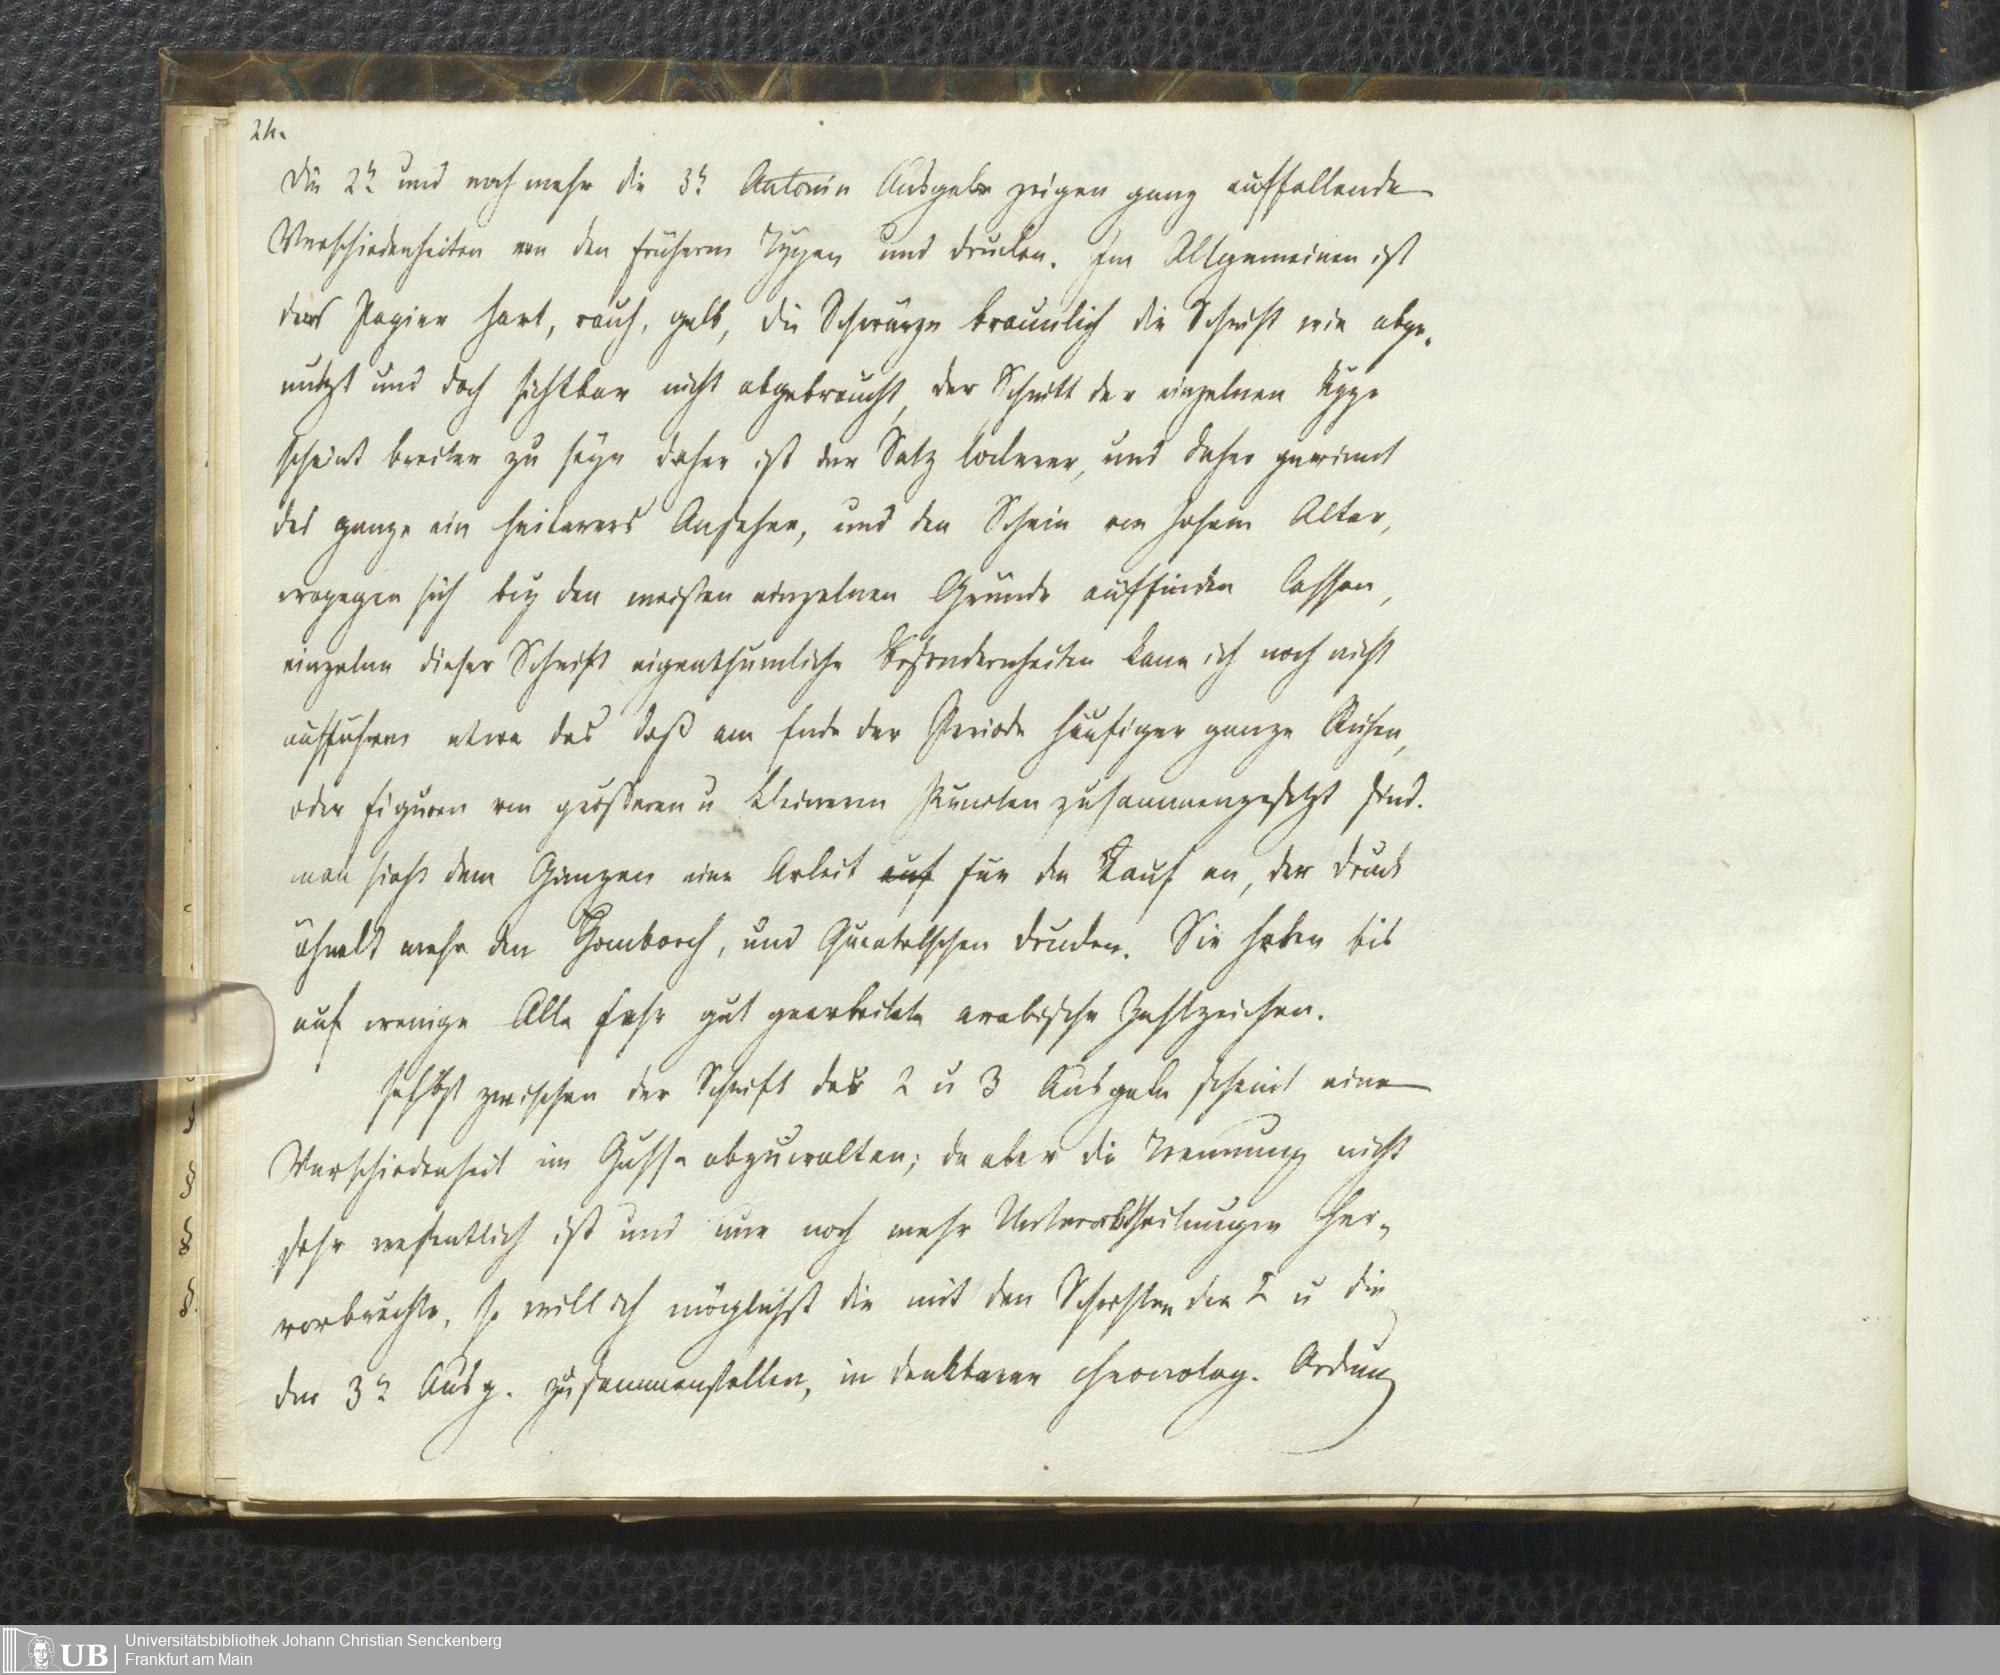 24.
Die 2te und noch mehr die 3te Antonin Ausgabe zeigen ganz auffallende
Verschiedenheiten von den früheren Typen und Drucken. Im Allgemeinen ist
das Papier hart, rauh, gelb, die Schwärze braunlich die Schrift wie abge-
nutzt und doch sichtbar nicht abgebraucht, der Schnitt der einzelnen Type
scheint breiter zu seyn daher ist der Satz lockerer, und daher gewinnt
das ganze ein heiterers Ansehen, und den Schein von hohem Alter,
wogegen sich bey den meisten einzelnen Gründe auffinden lassen,
einzelne dieser Schrift eigenthumliche Besonderheiten kann ich noch nicht
aufführen etwa das daß am Ende der Periode häufiger ganze Reihen,
oder Figuren von grösseren u kleineren Puncten zusammengesetzt sind.
man sieht dem Ganzen eine Arbeit auf für den Kauf an, der Druck
ähnelt mehr den Gomborch, und Quentelschen Drucken. Sie haben bis
auf wenige Alle sehr gut gearbeitete arabische Zahlzeichen.
selbst zwischen der Schrift der 2 u 3 Ausgabe scheint eine
Verschiedenheit im Gusse obzuwalten; da aber die Trennung nicht
sehr wesentlich ist und nur noch mehr Unterabtheilungen her-
vorbrächte, so will ich möglichst die mit den Schriften der 2 u die
der 3te Ausg. zusammenstellen, in denkbarer chronolog. Ordnung
Universitätsbibliothek Johann Christian Senckenberg
Frankfurt am Main
UB